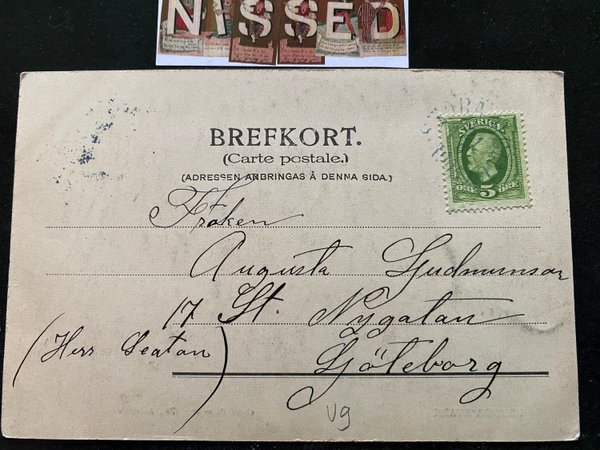 NISSED
BREFKORT.
(Carte postale.)
(ADRESSEN ANBRINGAS Å DENNA SIDA.)
SVERIGE
ÖRE 5 ÖRE
Fröken
Augusta Gudmunson
17 St. Nygatan
(Herr Seaton)
Göteborg
V9